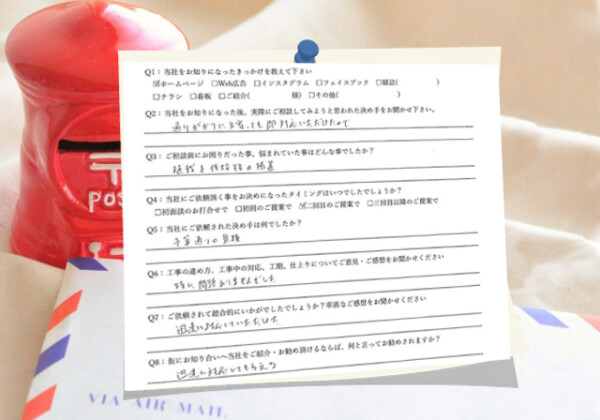 Q1：当社をお知りになったきっかけを教えて下さい
☑ホームページ　□Web広告　□インスタグラム　□フェイスブック　□雑誌(　　　　)
□チラシ　□看板　□ご紹介(　　　　様)　□その他(　　　　)
Q2：当社をお知りになった後、実際にご相談してみようと思われた決め手をお聞かせ下さい。
Q3：ご相談前にお困りだった事、悩まれていた事はどんな事でしたか？
Q4：当社にご依頼頂く事をお決めになったタイミングはいつでしたでしょうか？
□初面談のお打合せで　□初回のご提案で　☑二回目のご提案で　□三回目以降のご提案で
Q5：当社にご依頼された決め手は何でしたか？
予算通りの見積
Q6：工事の進め方、工事中の対応、工期、仕上りについてご意見・ご感想をお聞かせください
特に問題ありませんでした
Q7：ご依頼されて総合的にいかがでしたでしょうか？率直なご感想をお聞かせください
迅速に対応していただけた
Q8：仮にお知り合いへ当社をご紹介・お勧め頂けるならば、何と言ってお勧めされますか？
迅速に対応してもらえる
POS
VIA AIR MAIL